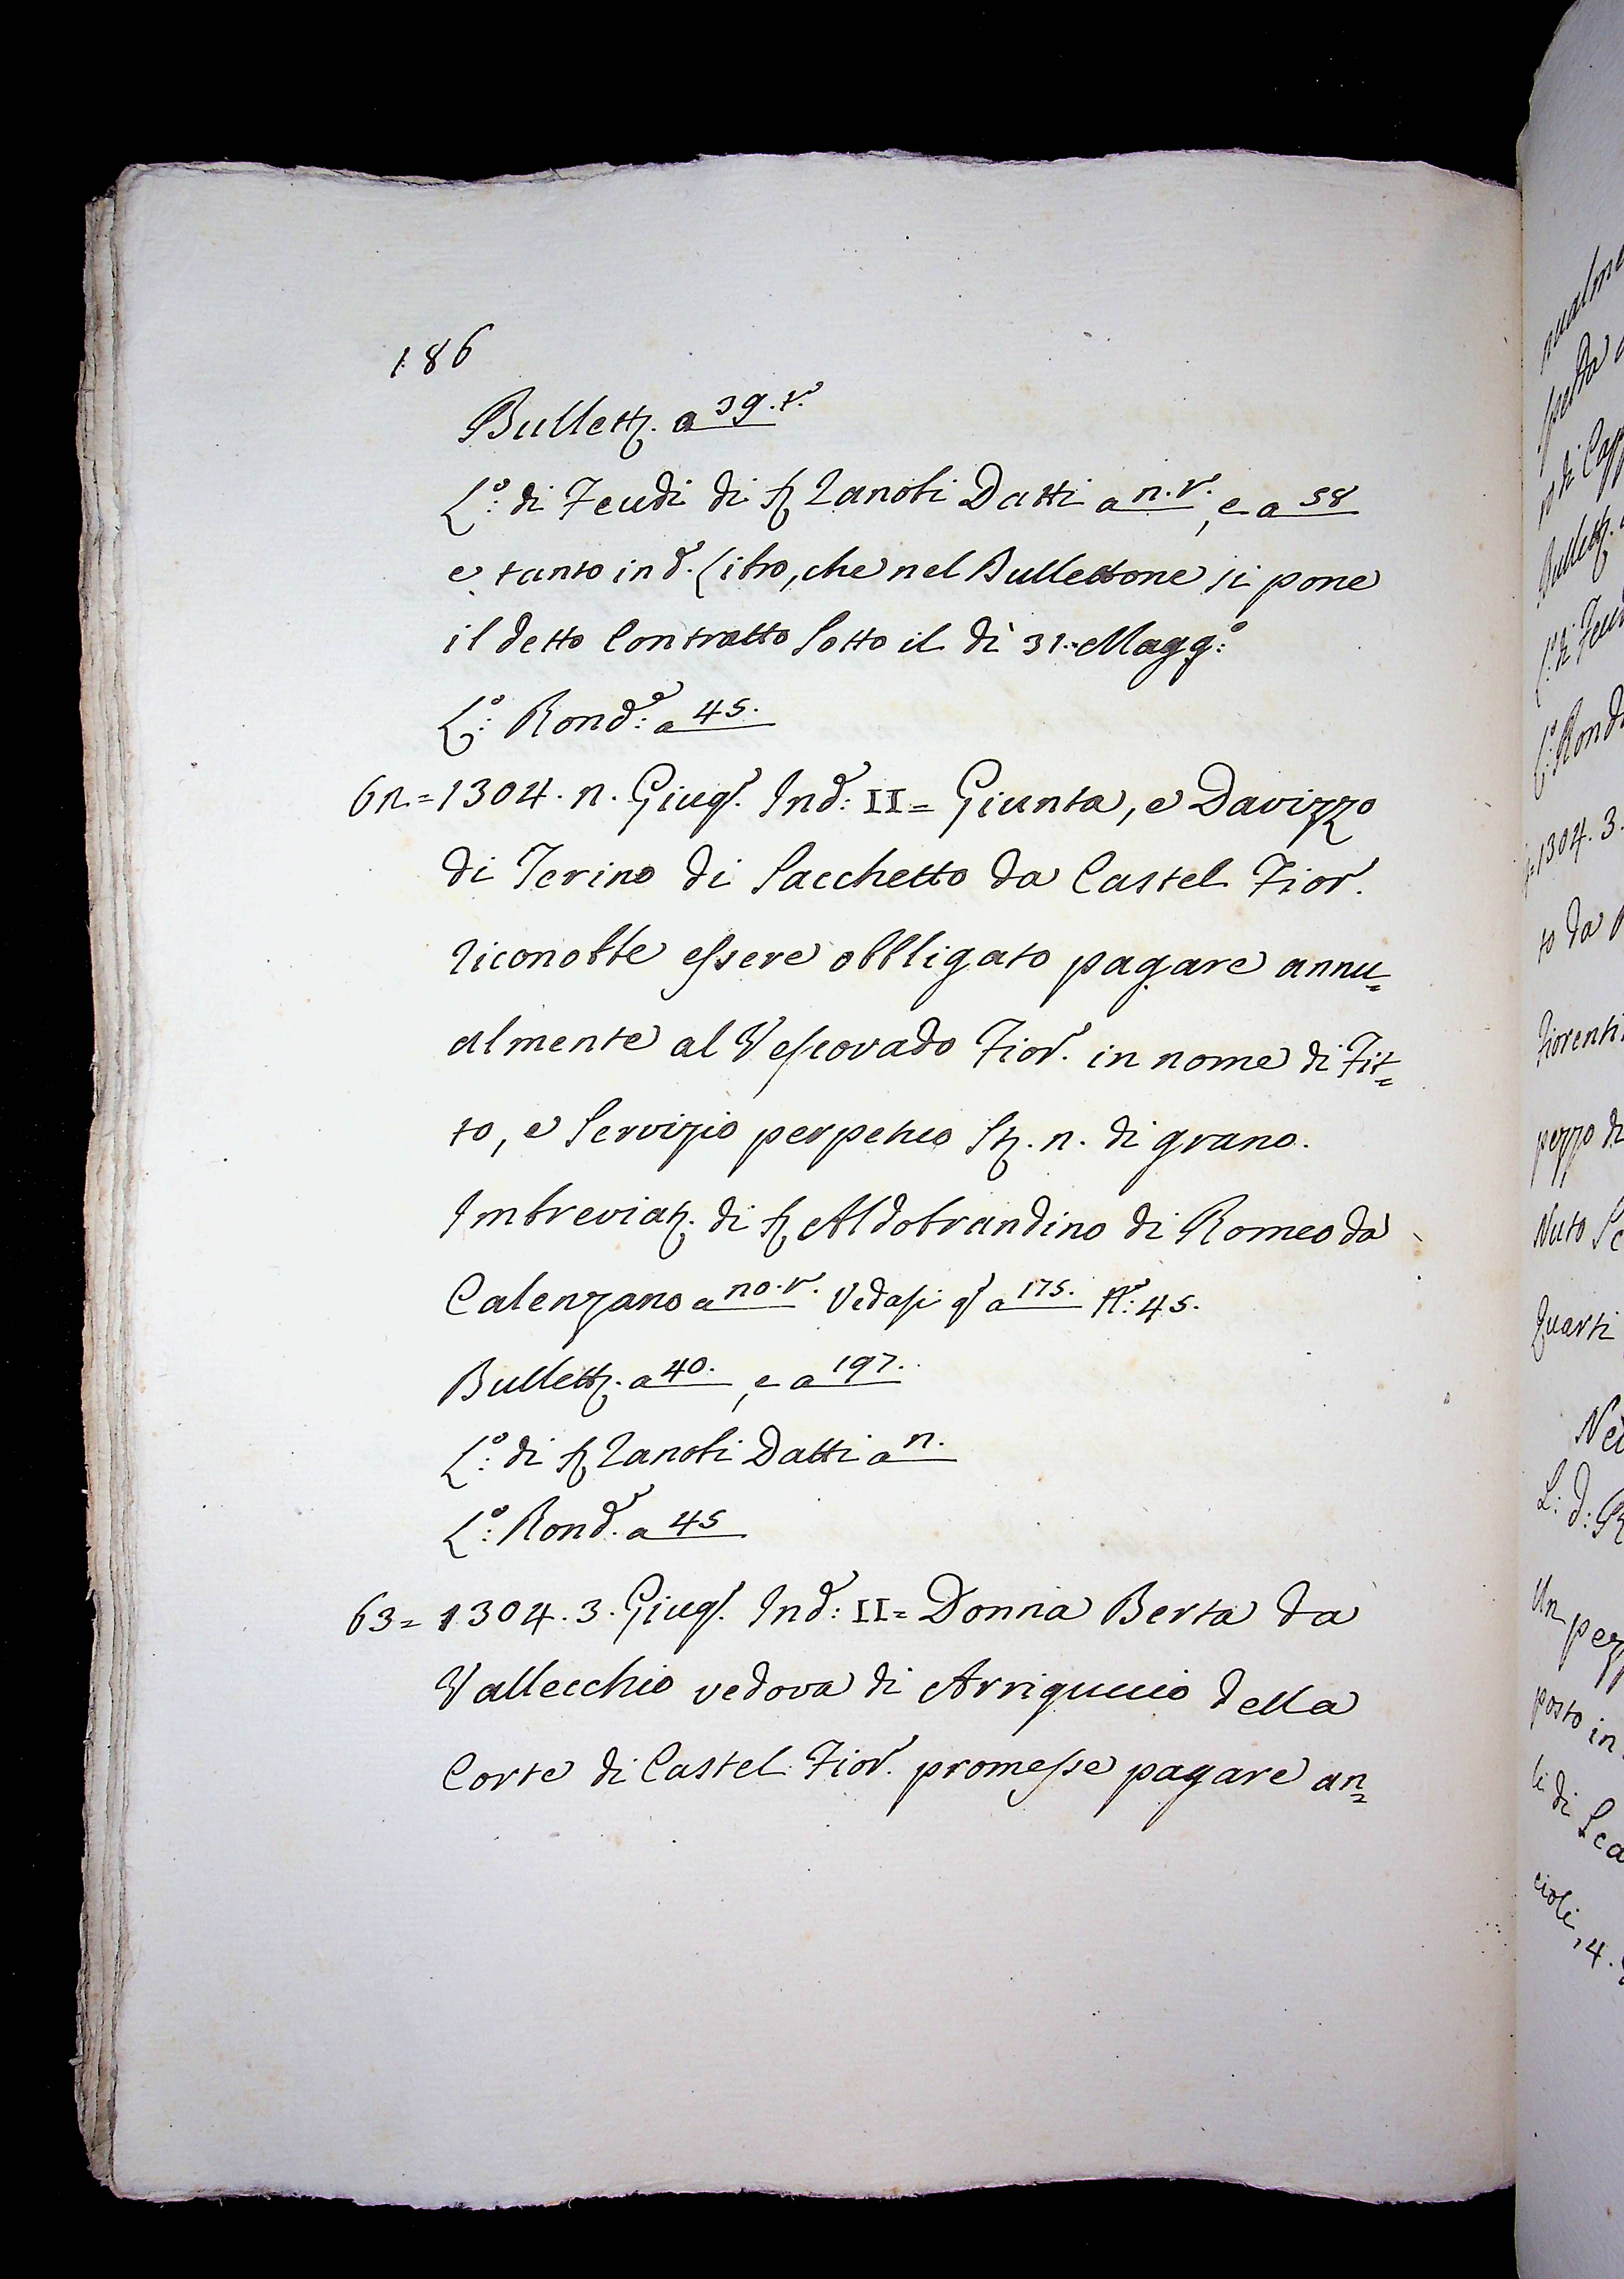 186
Bullett. a 39. v.
L.º di Feudi di S. Zanobi Datti a 2. v., e a 58
e tanto in d. Libro, che nel Bullettone si pone
il detto Contratto sotto il dì 31. Magg:º
L:º Rond:º a 45.
62 = 1304. 2. Giug. Ind: II = Giunta, e Davizzo
di Terino di Sacchetto da Castel Fior.
riconobbe essere obbligato pagare annu=
almente al Vescovado Fior. in nome di Fit=
to, e Servizio perpetuo St. 2. di grano.
Imbreviat. di S. Aldobrandino di Romeo da
Calenzano a 20. v. Vedasi q. a 175. N:º 45.
Bullett. a 40., e a 197.
L:º di S. Zanobi Datti a 2.
L:º Rond. a 45
63 = 1304. 3. Giug. Ind: II = Donna Berta da
Vallecchio vedova di Arriguccio della
Corte di Castel Fior. promesse pagare an=
Bullett.
L:º di Feud
L:º Rond
=1304. 3.
to da
Fiorenti
pezzo di
Nuto
quarti
Un pez
posto in